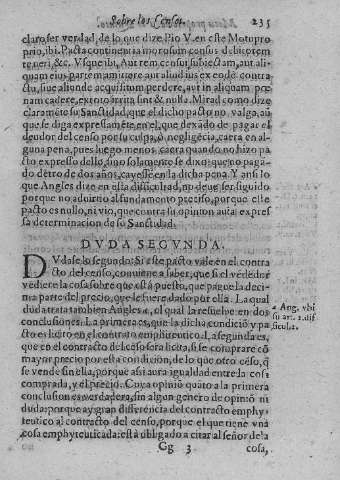 Sobre los Censos. 235
claro ser verdad, de lo que dize Pio V. en este Motu pro
prio, ibi. Pacta continentia morosum census debitorem
teneri, &c. Vsque ibi, Aut rem censui subiectam, aut ali
quam eius partem amittere aut aliud ius ex eodē contra
ctu, siue aliunde acquisitum perdere, aut in aliquam pœ
nam cadere, ex toto irrita sint & nulla. Mirad como dize
claramēte su Sanctidad, que el dicho pacto no valga, aū
que se diga expressamēte en el, que dexādo de pagar el
deudor del censo por su culpa, ò negligēcia, caera en al
guna pena, pues luego menos caera quando no hizo pa
cto expresso dello, sino solamente se dixo: que no pagā
do dētro de dos años, cayesse en la dicha pena. Y ansi lo
que Angles dize en esta difficultad, no deue ser seguido
porque no aduirtio al fundamento preciso, porque este
pacto es nullo, ni vio, que contra su opinion auia expres
sa determinacion de su Sanctidad.
DVDA SEGVNDA.
DVdase lo segundo: Si este pacto vale en el contra
cto del censo, conuiene a saber, que si el vēdedor
vēdiere la cosa sobre que està puesto, que pague la deci
ma parte del precio, que le fuere dado por ella. La qual
duda trata tambien Angles a, el qual la resuelue en dos
conclusiones. La primera es, que la dicha condiciō y pa
cto es licito en el contrato emphiteutico. La segunda es,
que en el contracto del censo sera licita, si se comprare cō
mayor precio por esta condicion, de lo que otro cēso, q̄
se vende sin ella, porque assi aura igualdad entre la cosa
comprada, y el precio. Cuya opinió quāto a la primera
conclusion es verdadera, sin algun genero de opinió ni
duda: porque ay gran differencia del contracto emphy
teutico al contracto del censo, porque el que tiene vna
cosa emphyteuticada, està obligado a citar al señor de la
Gg 3 cosa,
a Ang. vbi
su ar. 2. dif
ficul. 2.